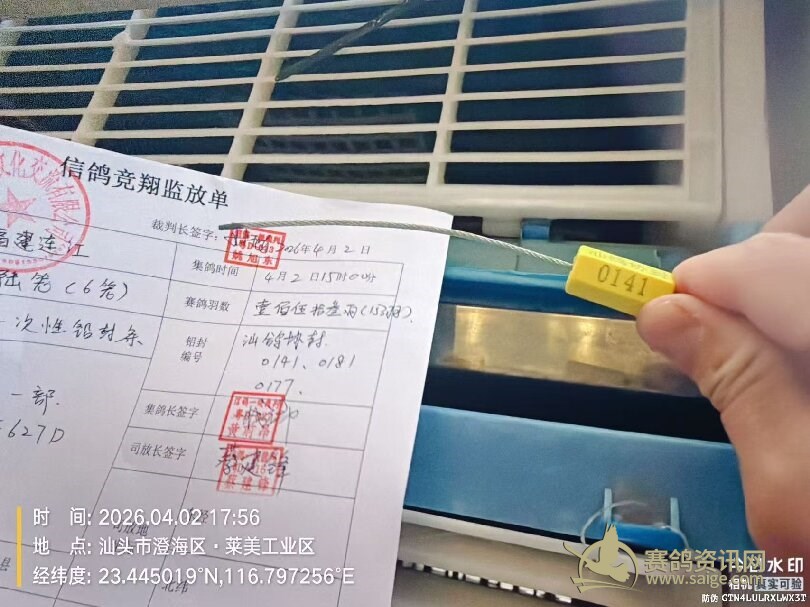 信鸽竞翔监放单
裁判长签字:
2026年4月2日
福建连江
集鸽时间
4月2日15时0分
陆笼(6笼)
赛鸽羽数
一次性铅封条
铅封
编号
汕鸽协封
0141、0181
0177.
一部.
627D
集鸽长签字
司放长签字
0141
时 间: 2026.04.02 17:56
地 点: 汕头市澄海区·莱美工业区
经纬度: 23.445019°N,116.797256°E
北纬
赛鸽资讯网
www.saige.com
水印
相机 真实可验
防伪 CTN4LULRXLWX3T